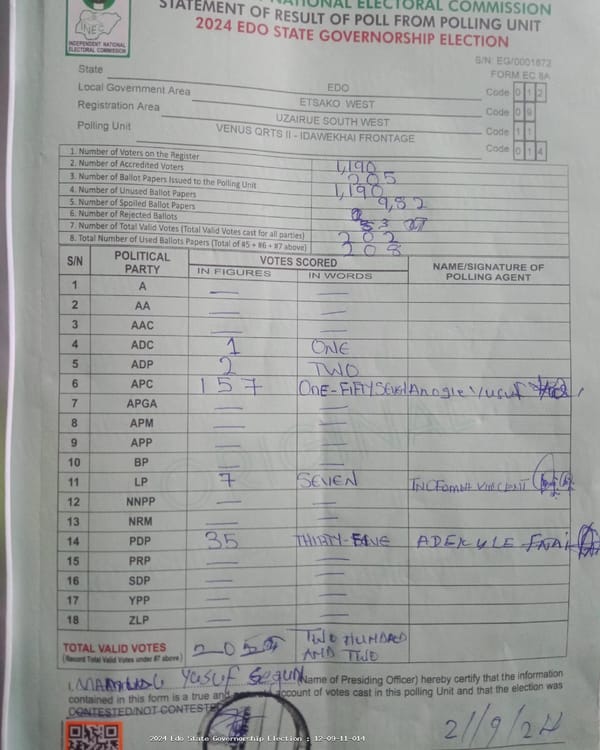 NATIONAL ELECTORAL COMMISSION
STATEMENT OF RESULT OF POLL FROM POLLING UNIT
2024 EDO STATE GOVERNORSHIP ELECTION
INEC
INDEPENDENT NATIONAL
ELECTORAL COMMISSION
S/N: EG/0001672
FORM EC 8A
State EDO Code 0 1 2
Local Government Area ETSAKO WEST Code 0 9
Registration Area UZAIRUE SOUTH WEST Code 1 1
Polling Unit VENUS QRTS II - IDAWEKHAI FRONTAGE Code 0 1 4
1. Number of Voters on the Register 1,190
2. Number of Accredited Voters 205
3. Number of Ballot Papers Issued to the Polling Unit 1,190
4. Number of Unused Ballot Papers 9,82
5. Number of Spoiled Ballot Papers
6. Number of Rejected Ballots 3
7. Number of Total Valid Votes (Total Valid Votes cast for all parties) 202
8. Total Number of Used Ballots Papers (Total of #5 + #6 + #7 above) 208
S/N POLITICAL PARTY VOTES SCORED NAME/SIGNATURE OF POLLING AGENT
IN FIGURES IN WORDS
1 A — —
2 AA — —
3 AAC — —
4 ADC 1 ONE
5 ADP 2 TWO
6 APC 157 ONE-FIFTY SEVEN Yusuf
7 APGA — —
8 APM — —
9 APP — —
10 BP — —
11 LP 7 SEVEN VINCENT
12 NNPP — —
13 NRM — —
14 PDP 35 THIRTY-FIVE ADEKULE
15 PRP — —
16 SDP — —
17 YPP — —
18 ZLP — —
TOTAL VALID VOTES TWO HUNDRED AND TWO
(Record Total Valid Votes under #7 above)
I, Yusuf Segun (Name of Presiding Officer) hereby certify that the information
contained in this form is a true and account of votes cast in this polling Unit and that the election was
CONTESTED/NOT CONTESTED
21/9/24
2024 Edo State Governorship Election : 12-09-11-014